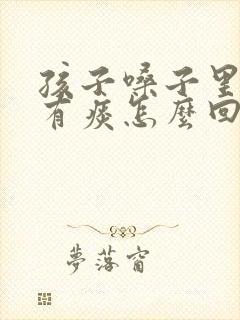 孩子嗓子里
有痰怎麼回
夢落窗